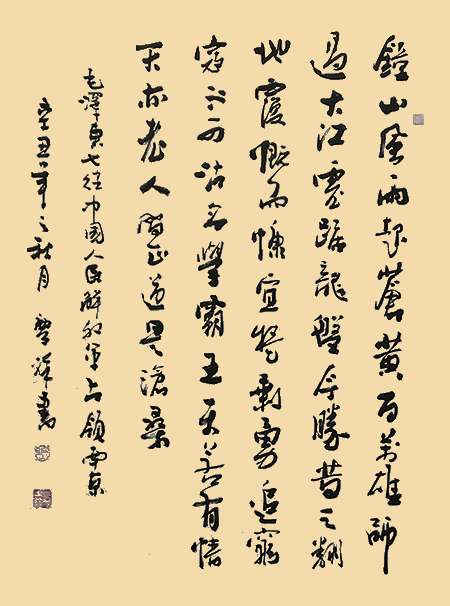 鐘山風雨起蒼黃百萬雄師
過大江虎踞龍盤今勝昔天翻
地覆慨而慷宜將剩勇追窮
寇不可沽名學霸王天若有情
天亦老人間正道是滄桑
毛澤東七律中國人民解放軍占領南京
辛丑年之秋月 書